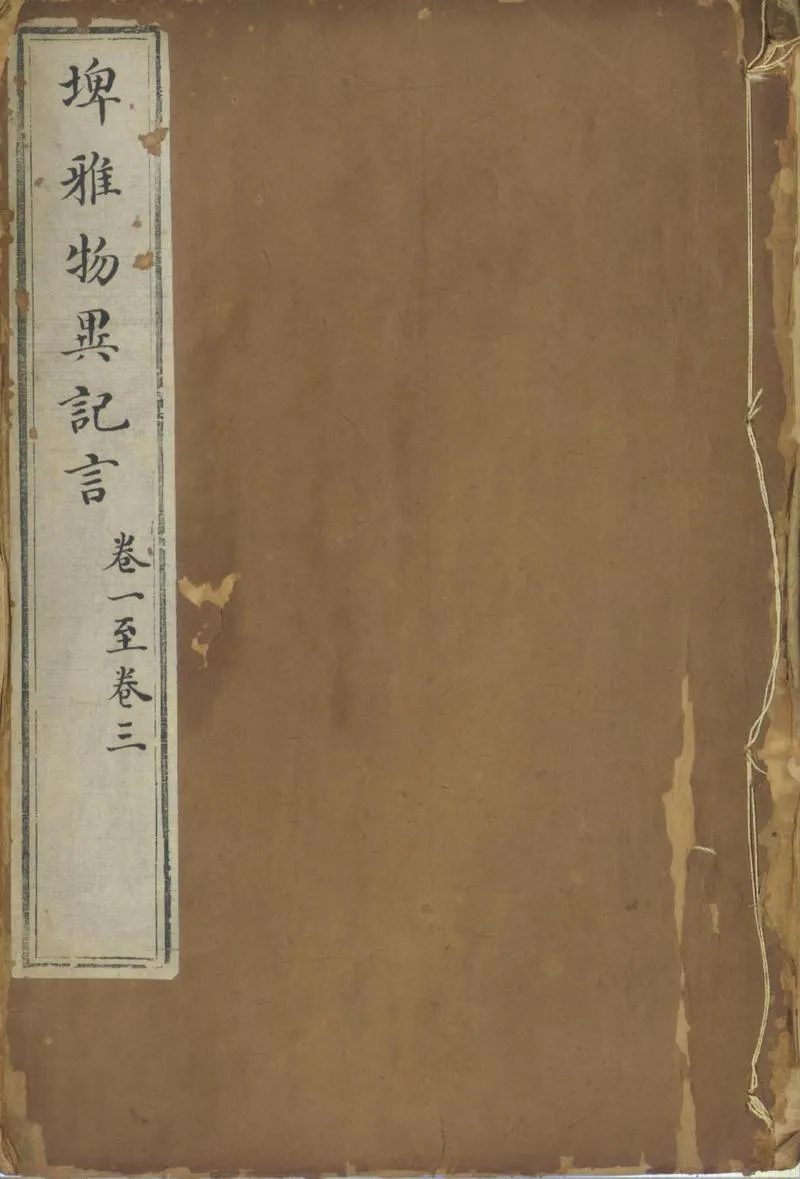 埤雅物異記言
卷一至卷三